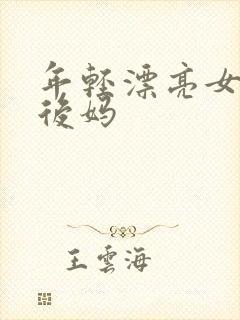 年轻漂亮女
後妈
王雲海